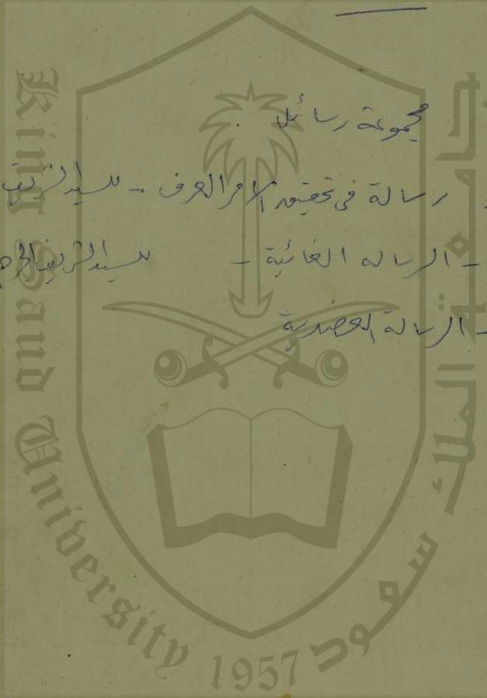 مجموعة رسائل
رسالة في تحقيق الحرف - للسيد الشريف
- الرسالة الغائية - للسيد الشريف
- الرسالة العضدية
King Saud University
1957
جامعة الملك سعود